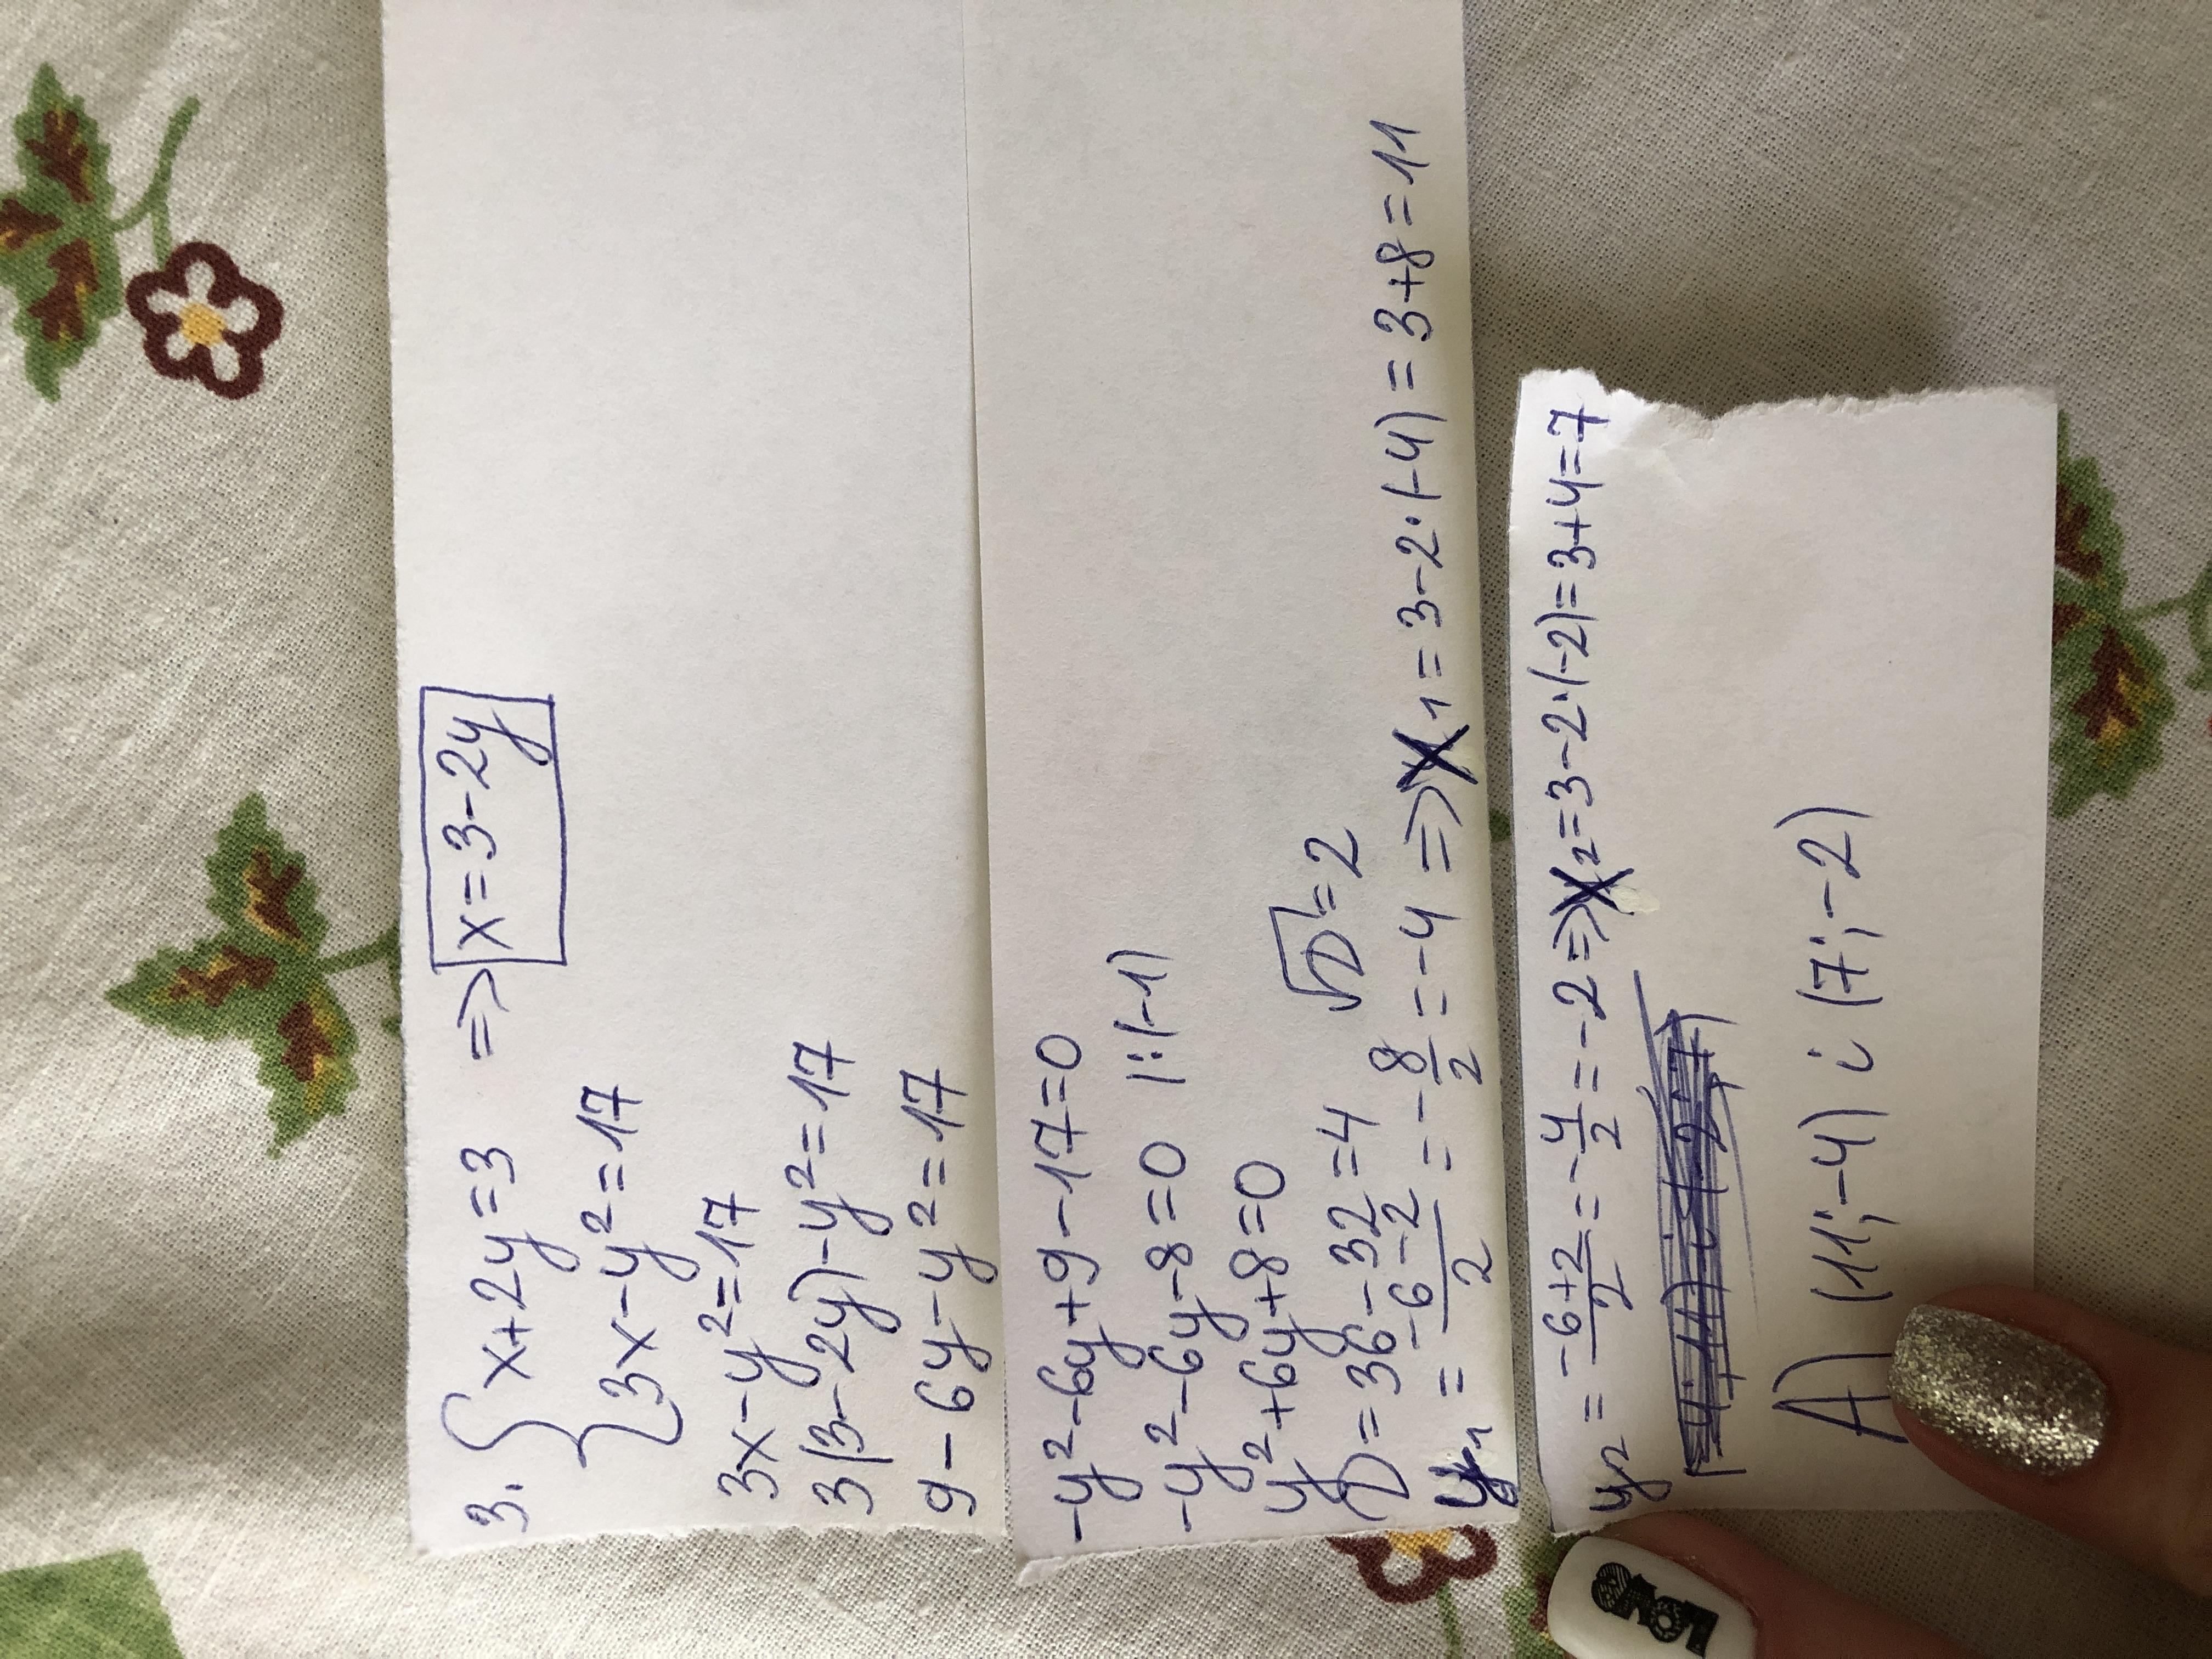 3. { x+2y=3 => x=3-2y
3x-y²=17
3x-y²=17
3(3-2y)-y²=17
9-6y-y²=17
-y²-6y+9-17=0
-y²-6y-8=0 |:(-1)
y²+6y+8=0
D=36-32=4 √D=2
y₁=(-6-2)/2=-8/2=-4 => x₁=3-2·(-4)=3+8=11
y₂=(-6+2)/2=-4/2=-2=>x₂=3-2·(-2)=3+4=7
A) (11;-4) i (7;-2)
LOVE